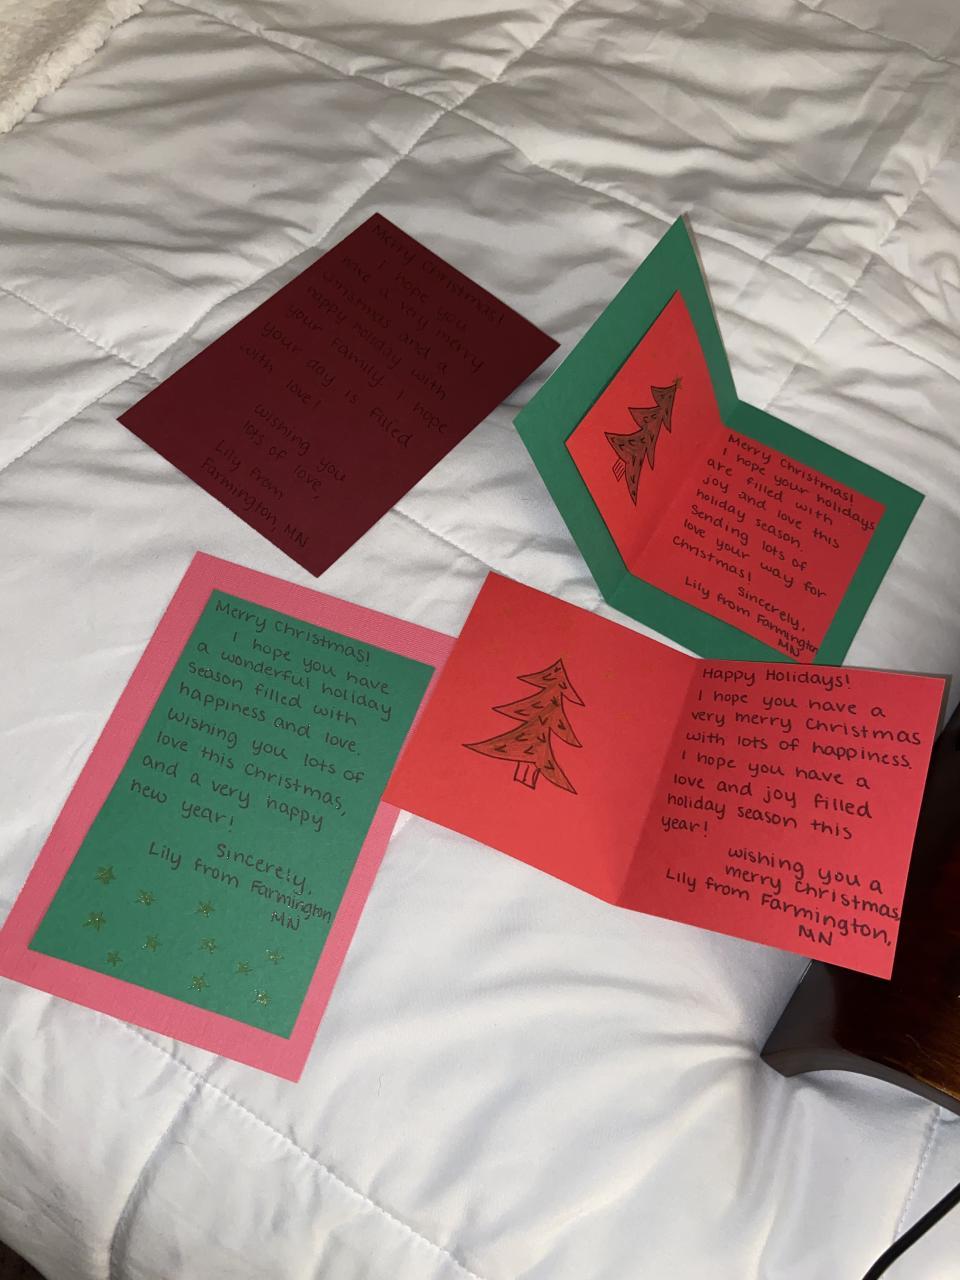 Merry Christmas!
I hope you
have a very merry
Christmas and a
happy holiday with
your family. I hope
your day is filled
with love!
wishing you
lots of love,
Lily from
Farmington, MN
Merry Christmas!
I hope your holidays
are filled with
joy and love this
holiday season.
Sending lots of
love your way for
Christmas!
Sincerely,
Lily from Farmington
MN
Merry Christmas!
I hope you have
a wonderful holiday
season filled with
happiness and love.
Wishing you lots of
love this Christmas,
and a very happy
new year!
Sincerely,
Lily from Farmington
MN
Happy Holidays!
I hope you have a
very merry Christmas
with lots of happiness.
I hope you have a
love and joy filled
holiday season this
year!
wishing you a
merry christmas,
Lily from Farmington,
MN